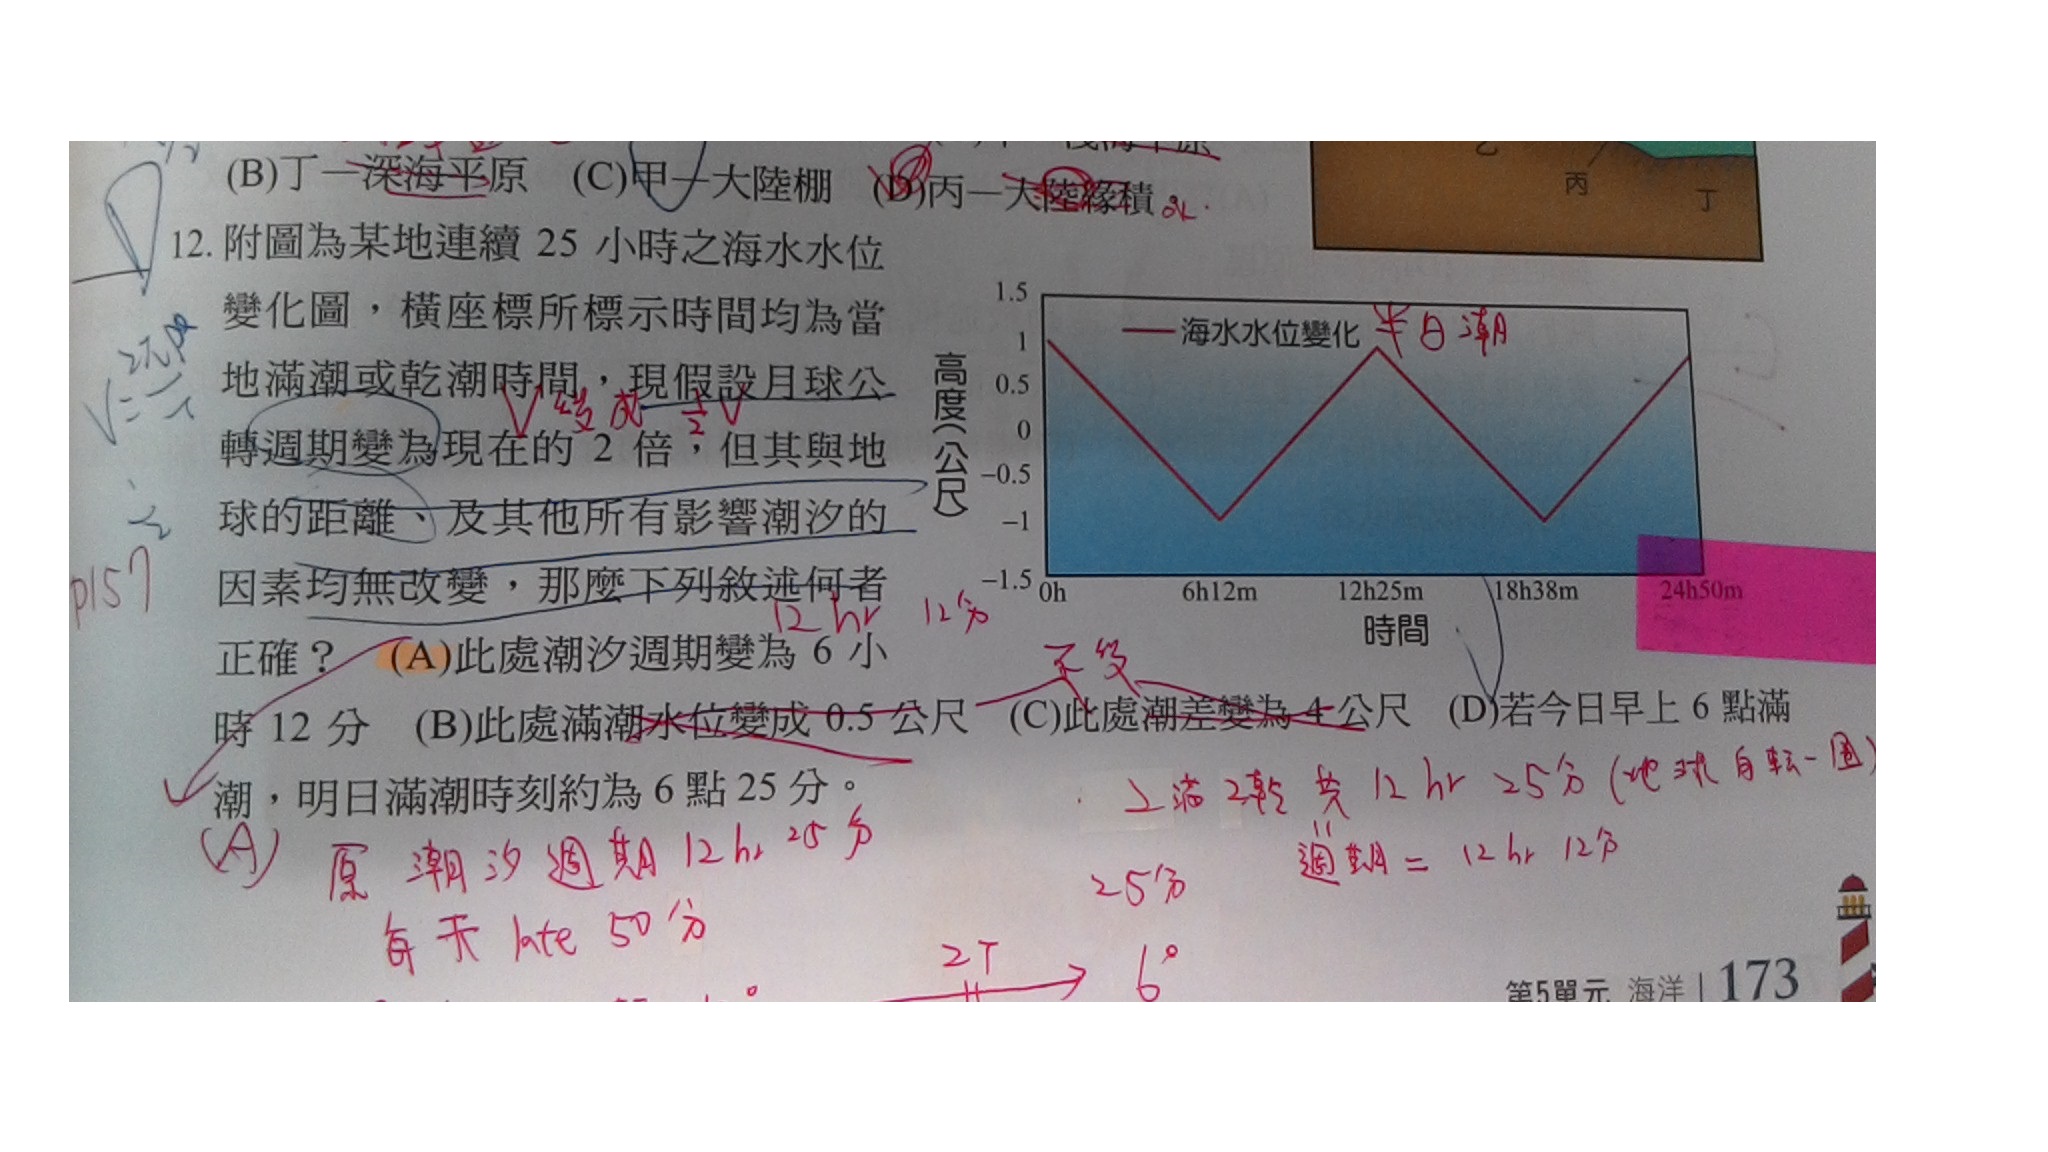 (B)丁—深海平原 (C)甲—大陸棚 (D)丙—大陸緣積 ok.
乙
丙
丁
12. 附圖為某地連續 25 小時之海水水位
變化圖,橫座標所標示時間均為當
地滿潮或乾潮時間,現假設月球公
V 變成 1/2 V
轉週期變為現在的 2 倍,但其與地
球的距離、及其他所有影響潮汐的
因素均無改變,那麼下列敘述何者
12 hr 12分
正確? (A)此處潮汐週期變為 6 小
不變
時 12 分 (B)此處滿潮水位變成 0.5 公尺 (C)此處潮差變為 4 公尺 (D)若今日早上 6 點滿
潮,明日滿潮時刻約為 6 點 25 分。
p157
海水水位變化
半日潮
高度(公尺)
1.5
1
0.5
0
–0.5
–1
–1.5
0h 6h12m 12h25m 18h38m 24h50m
時間
2滿2乾 共 12 hr 25分 (地球自転一圈)
週期 = 12 hr 12分
(A) 原 潮汐週期 12 hr 25 分
25分
每天 late 50分
2T
6°
第5單元 海洋 | 173